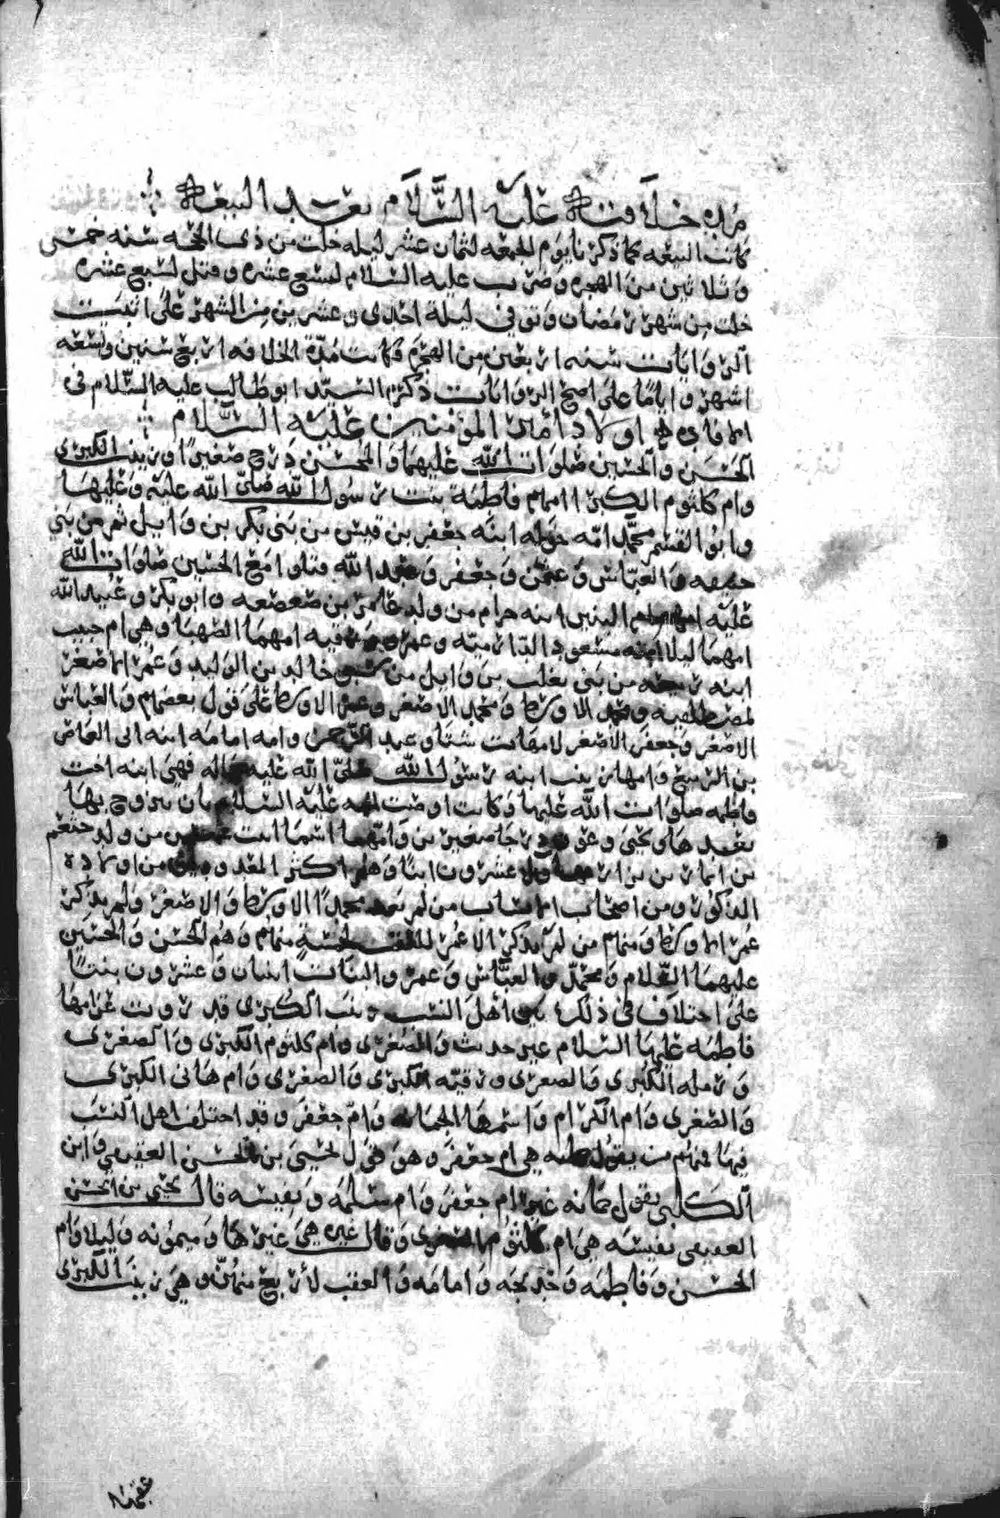 مدة خلافته عليه السلام بعد البيعة
كانت البيعه كما ذكرنا يوم الجمعه لثمان عشر ليله خلت من ذي الحجه سنه خمس
وثلاثين من الهجره وضرب عليه السلام لتسع عشره وقتل لسبع عشره
خلت من شهر رمضان وتوفي ليلة احدى وعشرين من الشهر على اثبت
الروايات سنه اربعين من الهجره فكانت مدة الخلافه اربع سنين وتسعه
اشهر واياما على اصح الروايات ذكره السيد ابو طالب عليه السلام في
الافاده اولاد امير المؤمنين عليه السلام
الحسن والحسين صلوات الله عليهما والمحسن درج صغيرا وزينب الكبرى
وام كلثوم الكبرى امهم فاطمة بنت رسول الله صلى الله عليه وعليها
وابو القسم محمد امه خوله ابنة جعفر بن قيس من بني بكر بن وايل ثم من بني
حنيفه والعباس وعثمن وجعفر وعبد الله قتلوا مع الحسين صلوات الله
عليه امهم ام البنين ابنه حرام من ولد عامر بن صعصعه وابو بكر وعبيد الله
امهما ليلا ابنه مسعود الدارميه وعمر ورقيه امهما الصهبا وهي ام حبيب
ابنه ربيعه من بني تغلب بن وايل من سبي خالد بن الوليد وعمر الاصغر
لمصطلقيه ومحمد الاوسط ومحمد الاصغر وعمر الاوسط على قول بعضهم والعباس
الاصغر وجعفر الاصغر لامهات شتا وعبد الرحمن وامه امامه ابنه ابي العاص
بن الربيع وامها زينب ابنه رسول الله صلى الله عليه واله فهي ابنه اخت
فاطمه صلوات الله عليها وكانت اوصت اليه عليه السلام بان يتزوج بها
بعدها ويحيى وعون درجا صغيرين وامهما اسما ابنت عميس من ولد خثعم
بن انمار بن اراش ولد عشرون ابنا وهم اكثر المعدودين من اولاده
الذكور ومن اصحاب الانساب من لم يعد محمدا الاوسط والاصغر ولم يذكر
عمر الاوسط ومنهم من لم يذكر الا عمر العقب لخمسة منهم وهم الحسن والحسين
عليهما السلام ومحمد والعباس وعمر والبنات اثنان وعشرون بنتا
على اختلاف في ذلك بين اهل النسب زينب الكبرى قد روت عن امها
فاطمه عليها السلام غير حديث والصغرى وام كلثوم الكبرى والصغرى
ورمله الكبرى والصغرى ورقيه الكبرى والصغرى وام هاني الكبرى
والصغرى وام الكرام واسمها الجمانه وام جعفر وقد اختلف اهل النسب
فيها فمنهم من يقول جمانه هي ام جعفر وهو قول يحيى بن الحسن العقيقي وابن
الكلبي يقول جمانه غير ام جعفر وام سلمه ونفيسه قال يحيى بن الحسن
العقيقي نفيسه هي ام كلثوم الصغرى وقال غيره هي غيرها وميمونه وليلا وام
الحسن وفاطمه وخديجه وامامه والعقب لاربع منهن وهي زينب الكبرى